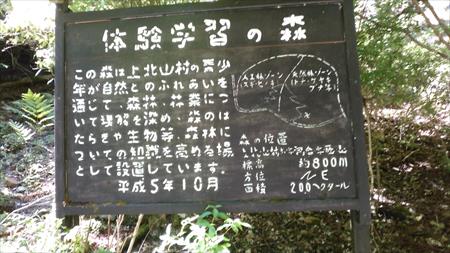 体験学習の森
この森は上北山村の青少
年が自然とのふれあいを
通じて、森林、林業につ
いて理解を深め、森のは
たらきや生物等、森林に
ついての知識を高める場
として設置しています。
平成5年10月
人工林ゾーン
(スギ・ヒノキ)
天然林ゾーン
ブナ等)
森の位置
標高 約800m
方位 NE
面積 200ヘクタール